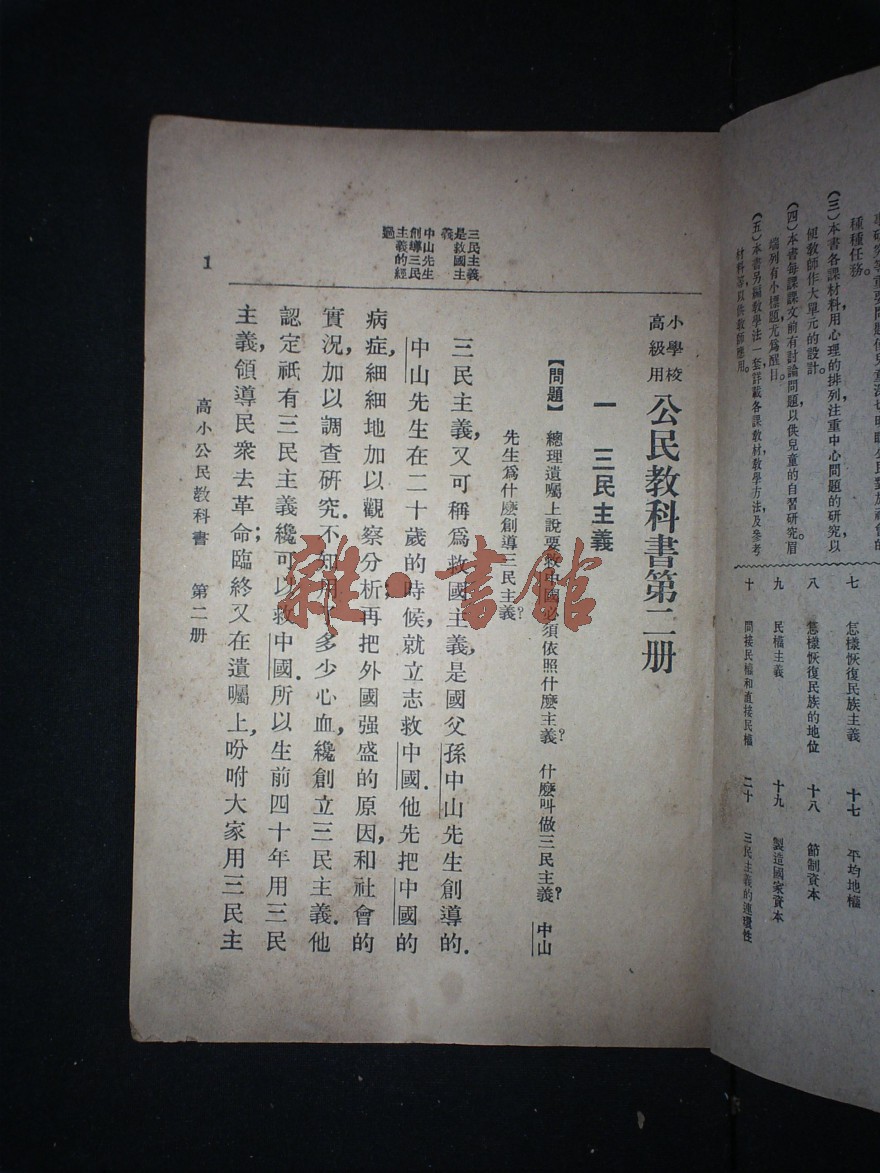 種種任務。
(三)本書各課材料用心理的排列注重中心問題的研究以
便教師作大單元的設計。
(四)本書每課課文前有討論問題以供兒童的自習研究。眉
端列有小標題尤爲醒目。
(五)本書另編教學法一套詳載各課教材教學方法及參考
材料等以供教師應用。
七 怎樣恢復民族主義 十七 平均地權
八 怎樣恢復民族的地位 十八 節制資本
九 民權主義 十九 製造國家資本
十 間接民權和直接民權 二十 三民主義的連環性
小學校
高級用
公民教科書第二册
一 三民主義
【問題】 總理遺囑上說要救中國必須依照什麽主義? 什麽叫做三民主義? 中山
先生爲什麽創導三民主義?
三民主義
是救國主
義
中山先生
創導三民
主義的經
過
三民主義,又可稱爲救國主義,是國父孫中山先生創導的.
中山先生在二十歲的時候,就立志救中國.他先把中國的
病症,細細地加以觀察分析;再把外國强盛的原因,和社會的
實況,加以調查研究.不知用多少心血,纔創立三民主義.他
認定祇有三民主義纔可以救中國.所以生前四十年用三民
主義,領導民衆去革命;臨終又在遺囑上,吩咐大家用三民主
高小公民教科書 第二册
1
雜·書館